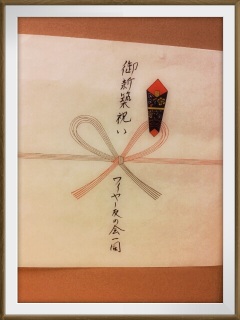 御新築祝い
ワイヤー友の会一同